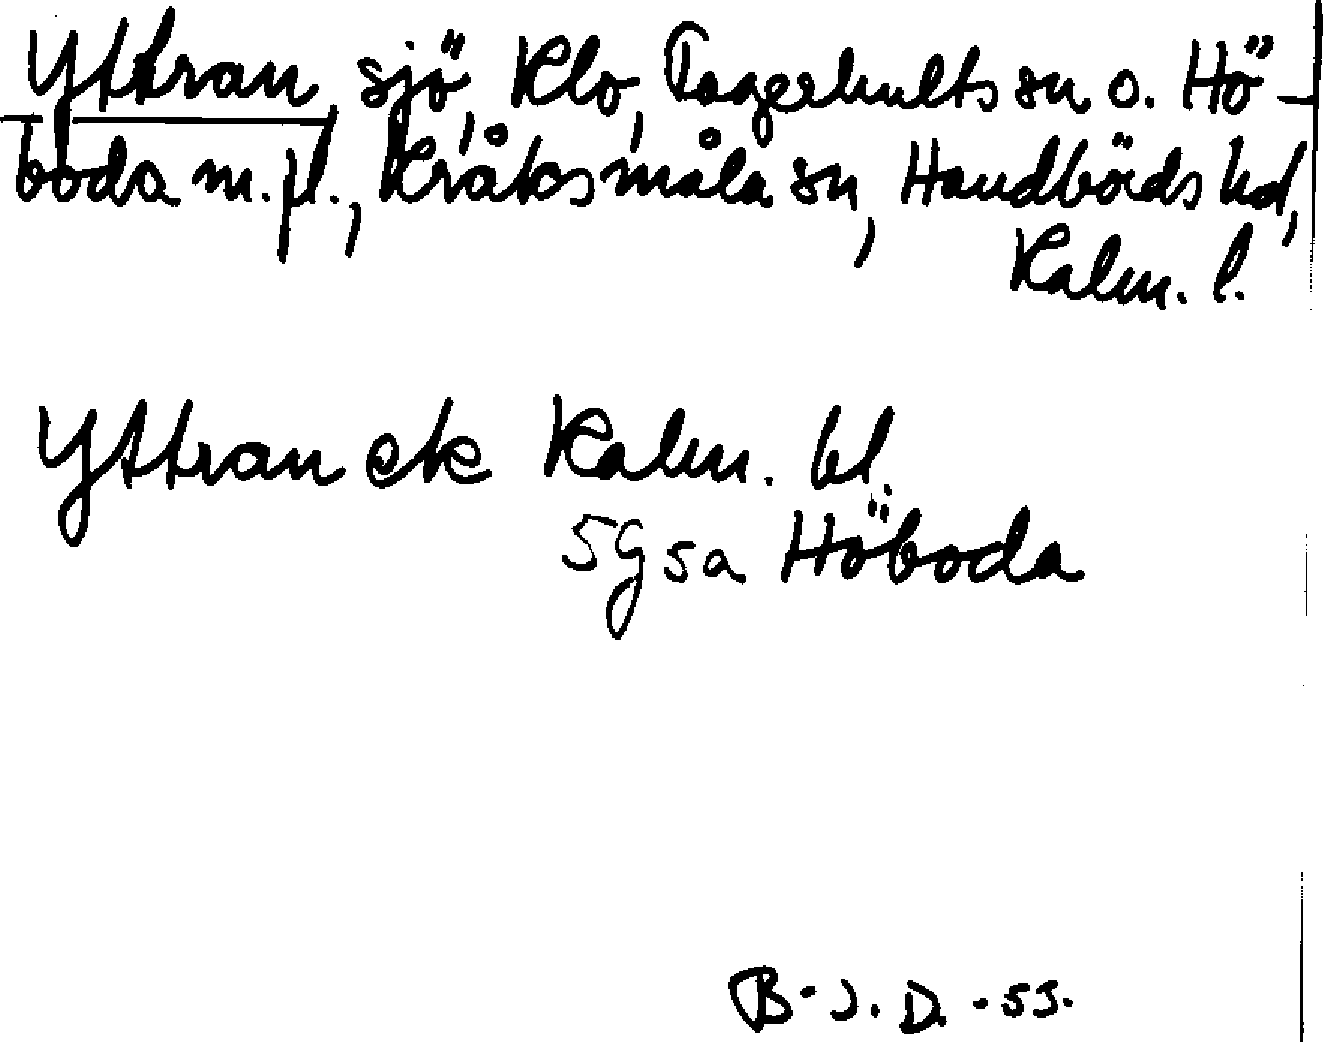 Yttran, sjö, Klo, Fagerhults sn o. Hö-
boda m.fl., Kråksmåla sn, Handbörds hd,
Kalm. l.
Yttran ek Kalm. bl.
5g5a Höboda
B-J.D.-53.